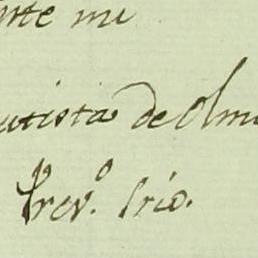 nte mi
utista de Olm
Prev.º Srio.